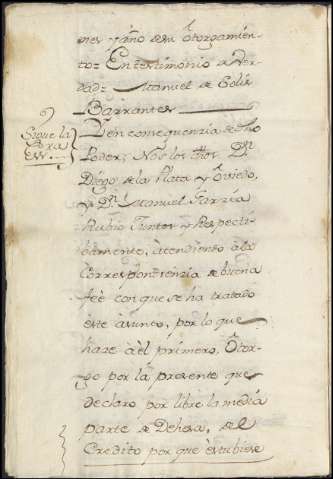 mes y año de su otorgamien-
to= En testimonio de Ver-
dad= Manuel de Solis
Barrantes
Sigue la
Y en consequenzia de dho
Poder; Nos los dhos Dn
Diego de la Plata y Oviedo,
y Dn Manuel Garzia
Rubio Juntos y Respecti-
bamente, atendiendo a la
correspondenzia de buena
feé con que se ha tratado
este asunto, por lo que
haze a èl primero, Otor-
go por la presente que
declaro por libre la media
parte de Dehesa, de el
Credito por que estubiese